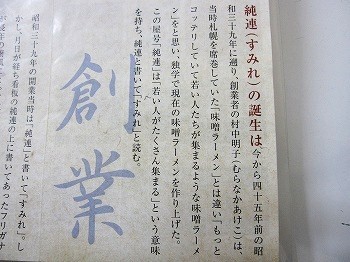 純連(すみれ)の誕生は今から四十五年前の昭
和三十九年に遡り、創業者の村中明子(むらなかあけこ)は、
当時札幌を席巻していた「味噌ラーメン」とは違い「もっと
コッテリしていて若い人たちが集まるような味噌ラーメ
ン」をと思い、独学で現在の味噌ラーメンを作り上げた。
この屋号「純連」は「若い人がたくさん集まる」という意味
を持ち、純連と書いて「すみれ」と読む。
創業
昭和三十九年の開業当時は「純連」と書いて「すみれ」。し
かし、月日が経ち看板の純連の上に書いてあったフリガナ